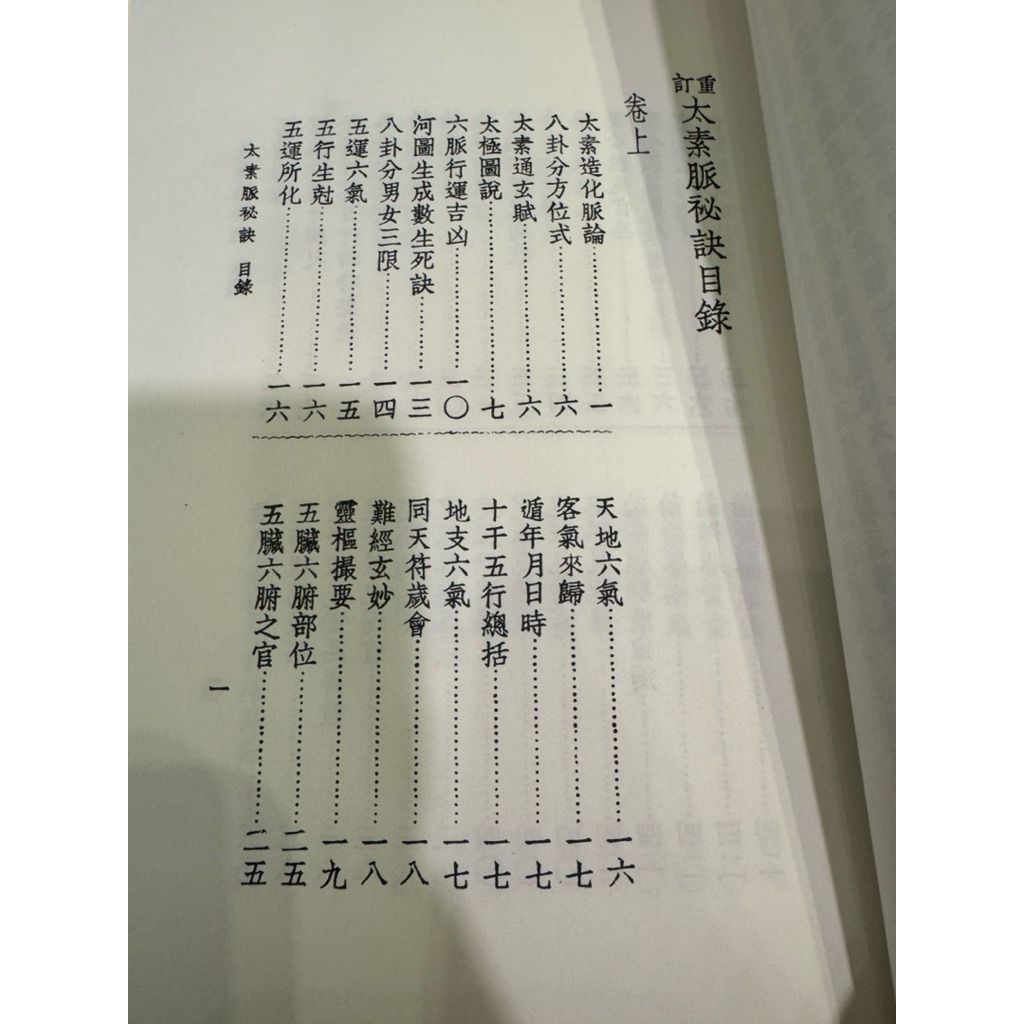 重訂太素脈祕訣目錄
卷上
太素造化脈論一
八卦分方位式六
太素通玄賦六
太極圖說七
六脈行運吉凶一〇
河圖生成數生死訣一三
八卦分男女三限一四
五運六氣一五
五行生尅一六
五運所化一六
天地六氣一六
客氣來歸一七
遁年月日時一七
十干五行總括一七
地支六氣一七
同天符歲會一八
難經玄妙一八
靈樞撮要一九
五臟六腑部位二五
五臟六腑之官二五
太素脈祕訣 目錄
一